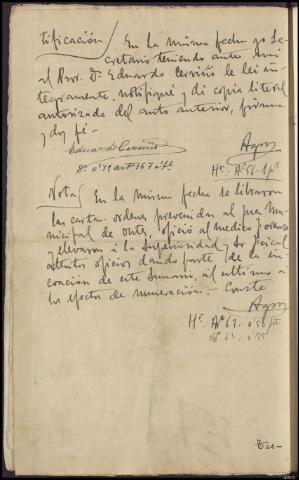 tificación) En la misma fecha yo Se-
cretario teniendo ante mi
al Pror. Dn Eduardo Cerviño le leí ín-
tegramente, notifiqué y dí copia literal
autorizada del auto anterior, firma
y doy fé -
Eduardo Cerviño
Nota) En la misma fecha se libraron
las cartas-ordenes prevenidas al juez Mu-
nicipal de oficio al Medico forense
y elevaron a la Superioridad y Sr Fiscal
atentos oficios dando parte de la in-
coación de este sumario, al ultimo a
los efectos de numeración. - Conste
Ter-